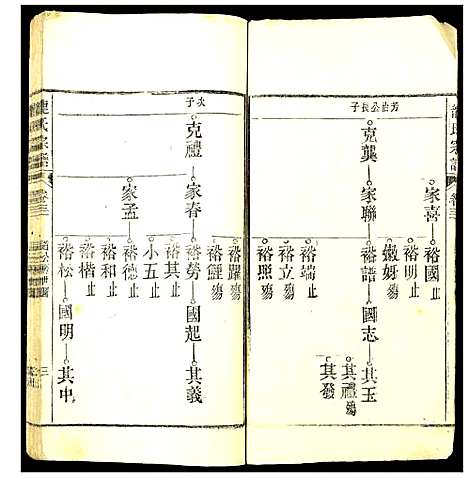 氏宗譜
卷三
家喜
裕國止
裕明止
嫩妍殤
芳甾公長子
克龔
家聯
裕譜
國志
其玉
其禮殤
其發
裕端止
裕立殤
裕照殤
次子
克禮
家春
裕躍殤
裕鯉殤
裕勞
國起
其義
裕其止
小五止
家孟
裕德止
裕和止
裕楷止
裕松
國明
其申
氏宗譜
卷三
三